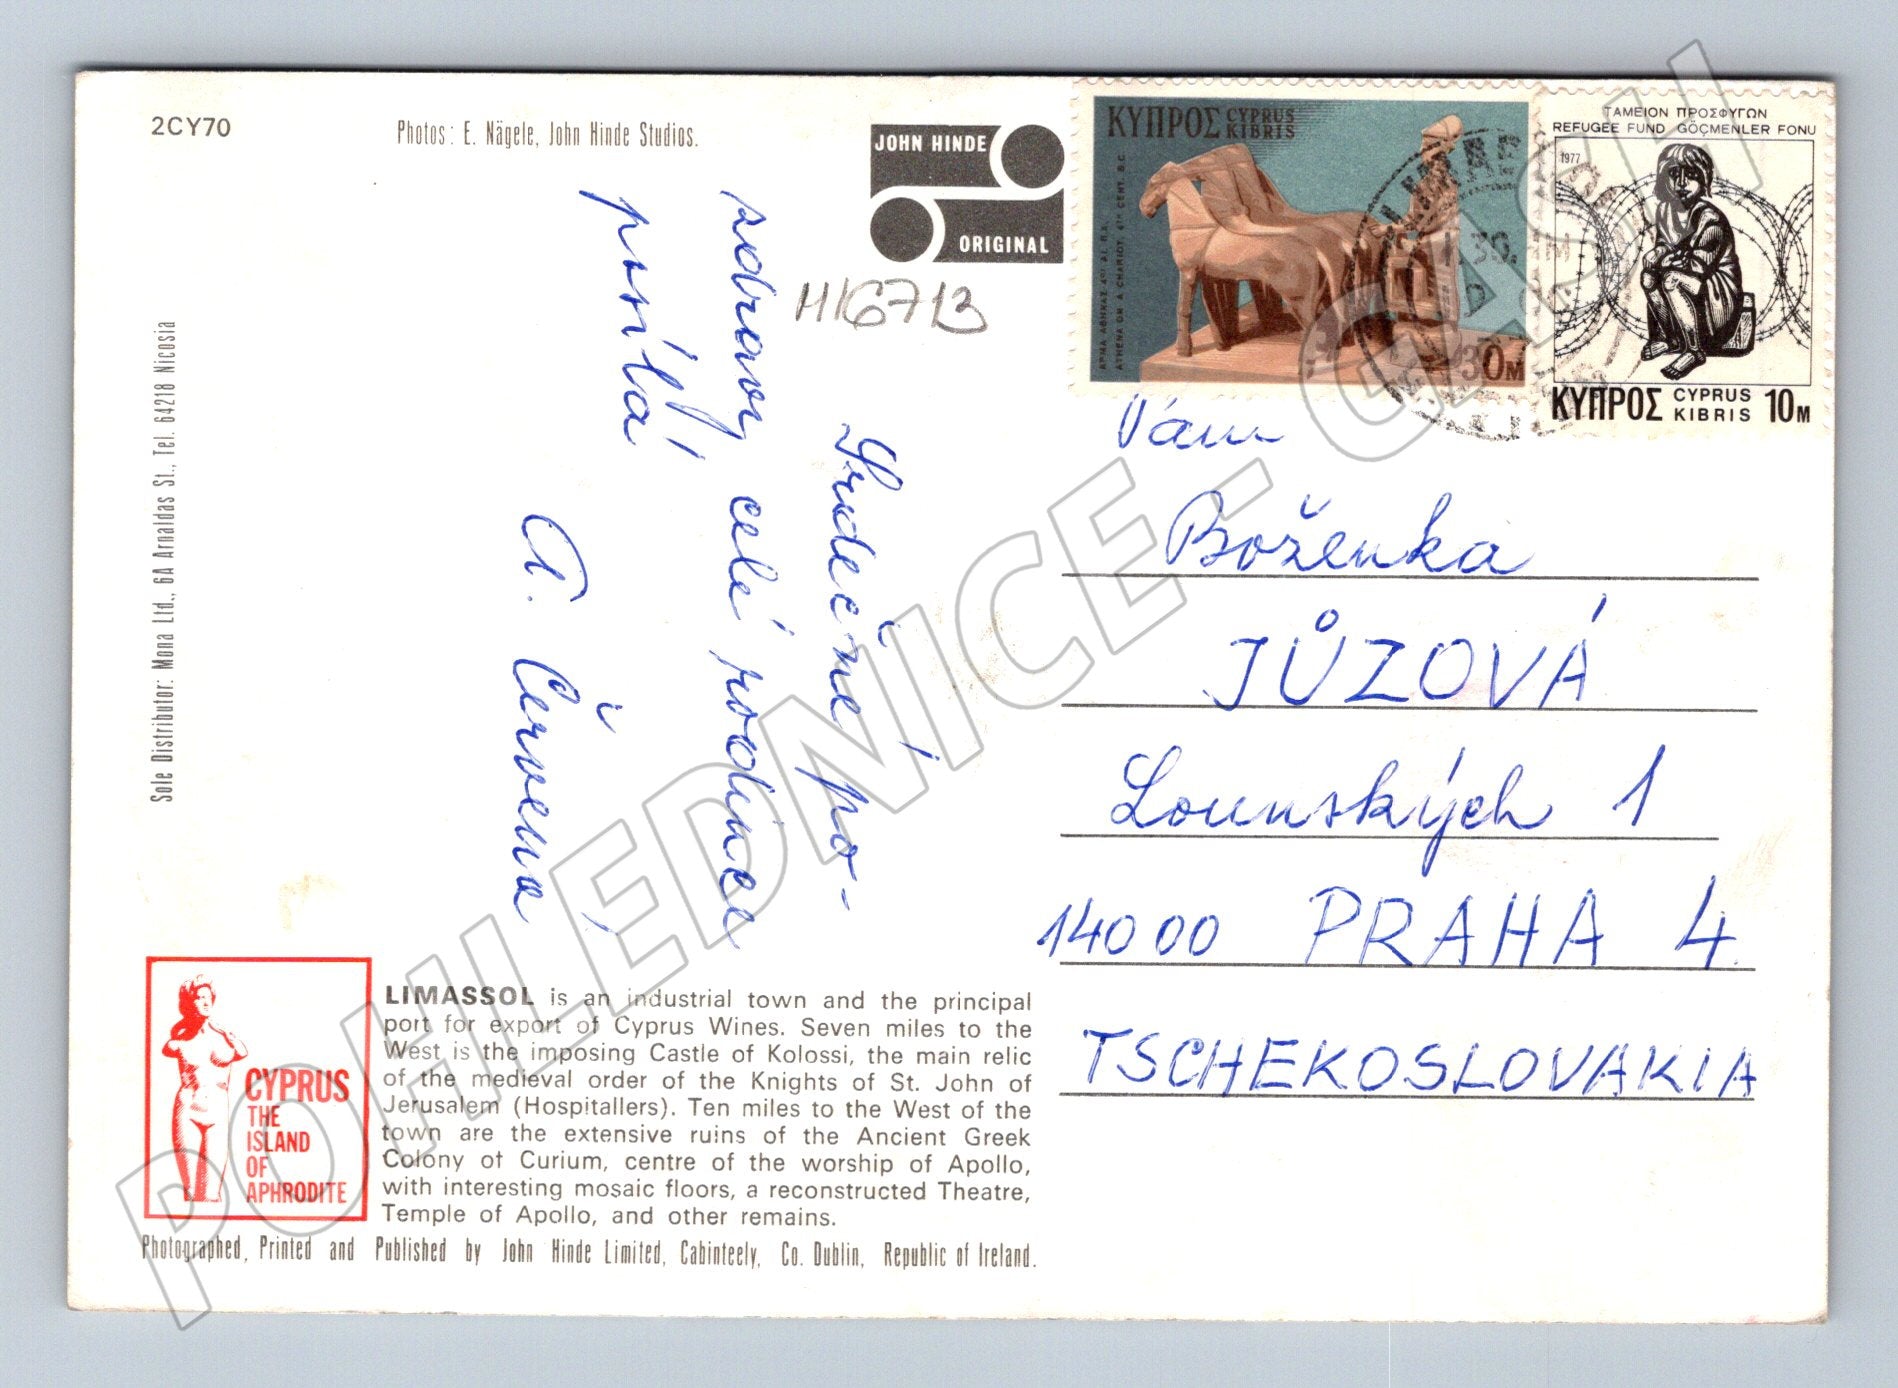 2CY70
Photos: E. Nägele, John Hinde Studios.
JOHN HINDE
ORIGINAL
M16713
Sole Distributor: Mona Ltd., 6A Arnaldas St., Tel. 64218 Nicosia
Srdečné po-
zdravy celé rodince
posílá
A. Červená
ΚΥΠΡΟΣ CYPRUS
KIBRIS
ΑΡΜΑ ΑΘΗΝΑΣ 4ΟΥ ΑΙ. Π.Χ.
ATHENA ON A CHARIOT, 4TH CENT. B.C.
30M
ΤΑΜΕΙΟΝ ΠΡΟΣΦΥΓΩΝ
REFUGEE FUND GÖÇMENLER FONU
1977
ΚΥΠΡΟΣ CYPRUS
KIBRIS 10M
Boženka
JŮZOVÁ
Lounských 1
14000 PRAHA 4.
TSCHEKOSLOVAKIA
CYPRUS
THE
ISLAND
OF
APHRODITE
LIMASSOL is an industrial town and the principal
port for export of Cyprus Wines. Seven miles to the
West is the imposing Castle of Kolossi, the main relic
of the medieval order of the Knights of St. John of
Jerusalem (Hospitallers). Ten miles to the West of the
town are the extensive ruins of the Ancient Greek
Colony of Curium, centre of the worship of Apollo,
with interesting mosaic floors, a reconstructed Theatre,
Temple of Apollo, and other remains.
Photographed, Printed and Published by John Hinde Limited, Cabinteely, Co. Dublin, Republic of Ireland.
POHLEDNICE - CASH